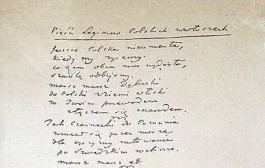 Pieśń Legionów Polskich we Włoszech
Jeszcze Polska nie umarła,
kiedy my żyjemy.
co nam obca moc wydarła,
szablą odbijemy.
marsz marsz Dąbrowski
do Polski z ziemi włoski
za Twoim przewodem
złączem się z narodem.
Jak Czarnecki do Poznania
wracał się przez morze
dla ojczyzny ratowania
po szwedzkim rozbiorze.
marsz marsz